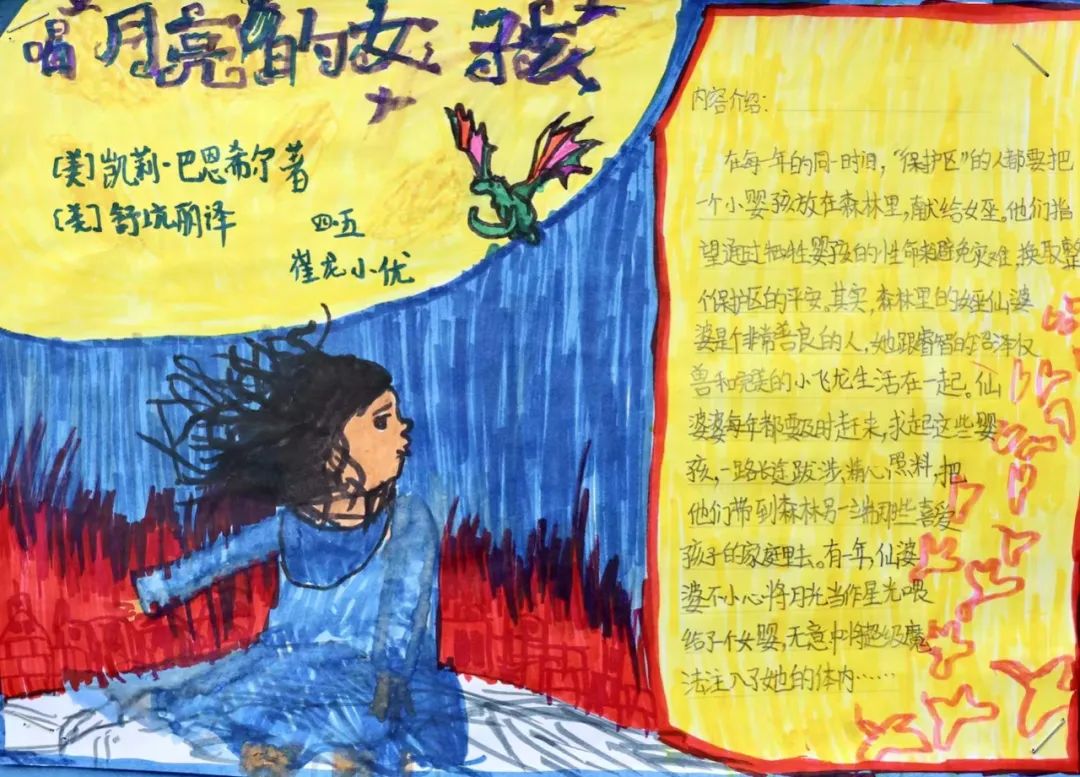 喝月亮的女孩
[美]凯莉·巴恩希尔著
[美]舒坑丽译
四·五
崔龙小优
内容介绍:
在每一年的同一时间,“保护区”的人都要把
一个小婴孩放在森林里,献给女巫。他们指
望通过牺牲婴孩的性命来避免灾难,换取整
个保护区的平安。其实,森林里的女巫仙婆
婆是个非常善良的人,她跟睿智的沼泽仅
兽和完美的小飞龙生活在一起。仙
婆婆每年都要及时赶来,求起这些婴
孩,一路长途跋涉,满心照料,把
他们带到森林另一端那些喜爱
孩子的家庭里去。有一年,仙婆
婆不小心将月光当作星光喂
给了个女婴,无意中将超级魔
法注入了她的体内……